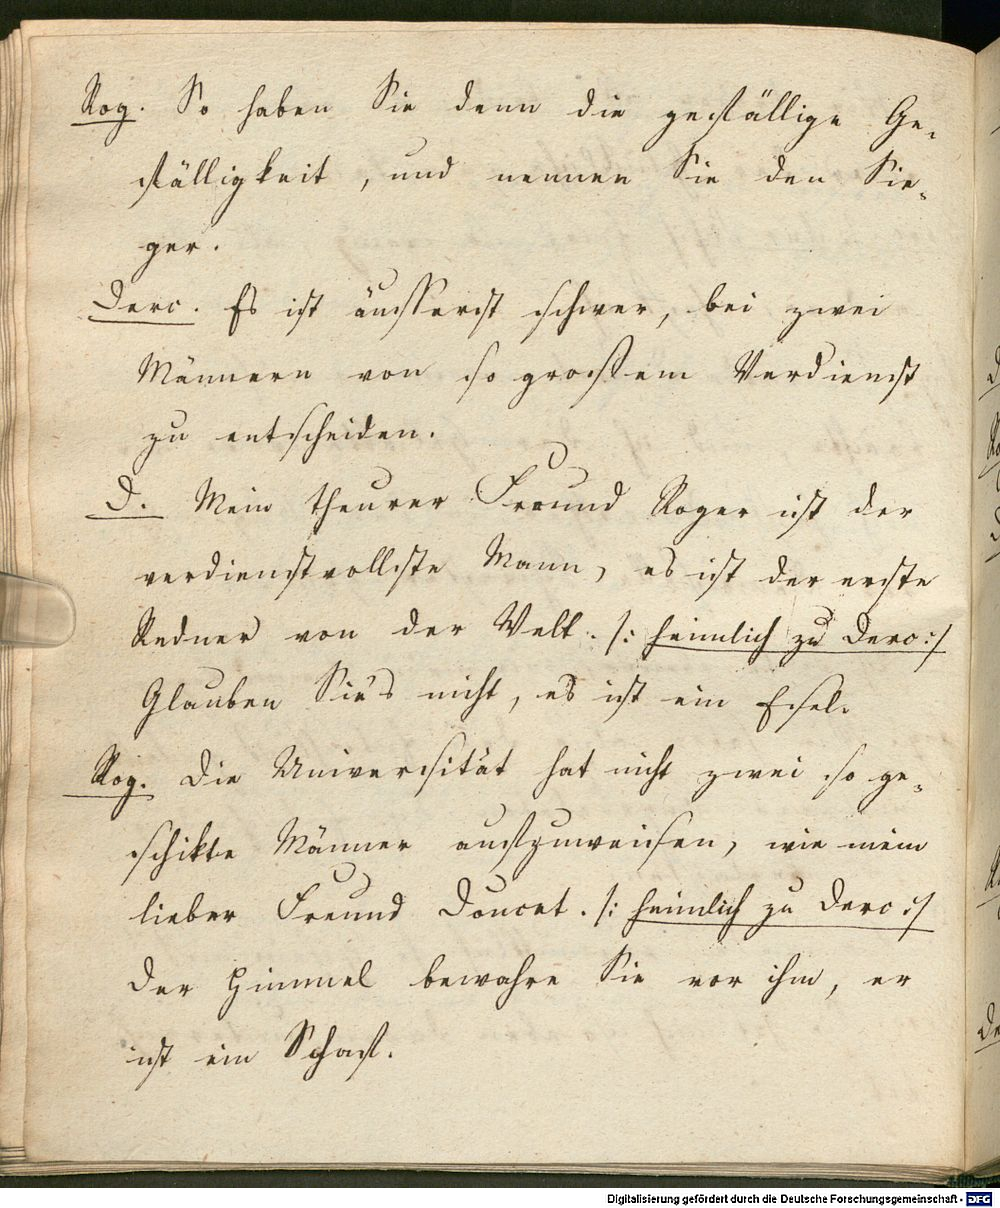 Rog. So haben Sie denn die gefällige Ge-
fälligkeit, und nennen Sie den Sie-
ger.
Derc. Es ist äusserst schwer, bei zwei
Männern von so großem Verdienst
zu entscheiden.
D. Mein theurer Freund Roger ist der
verdienstvollste Mann, es ist der erste
Redner von der Welt. /: heimlich zu Derc :/
Glauben Sie's nicht, es ist ein Esel.
Rog. Die Universität hat nicht zwei so ge-
schikte Männer aufzuweisen, wie mein
lieber Freund Doucet. /: heimlich zu Derc :/
Der Himmel bewahre Sie vor ihm, er
ist ein Schaf.
Digitalisierung gefördert durch die Deutsche Forschungsgemeinschaft - DFG